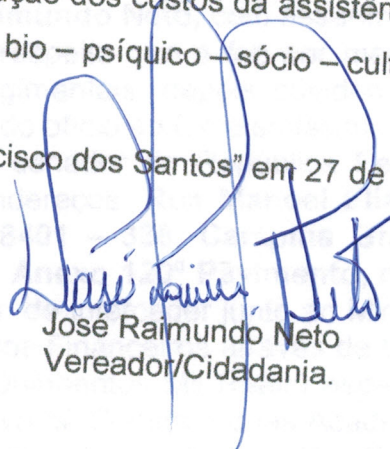 ação dos custos da assistên
bio – psíquico – sócio – cult
cisco dos Santos” em 27 de
José Raimundo Neto
José Raimundo Neto
Vereador/Cidadania.